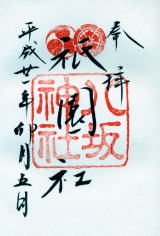 奉拝
祇園社
八坂神社
平成廿一年卯月五日